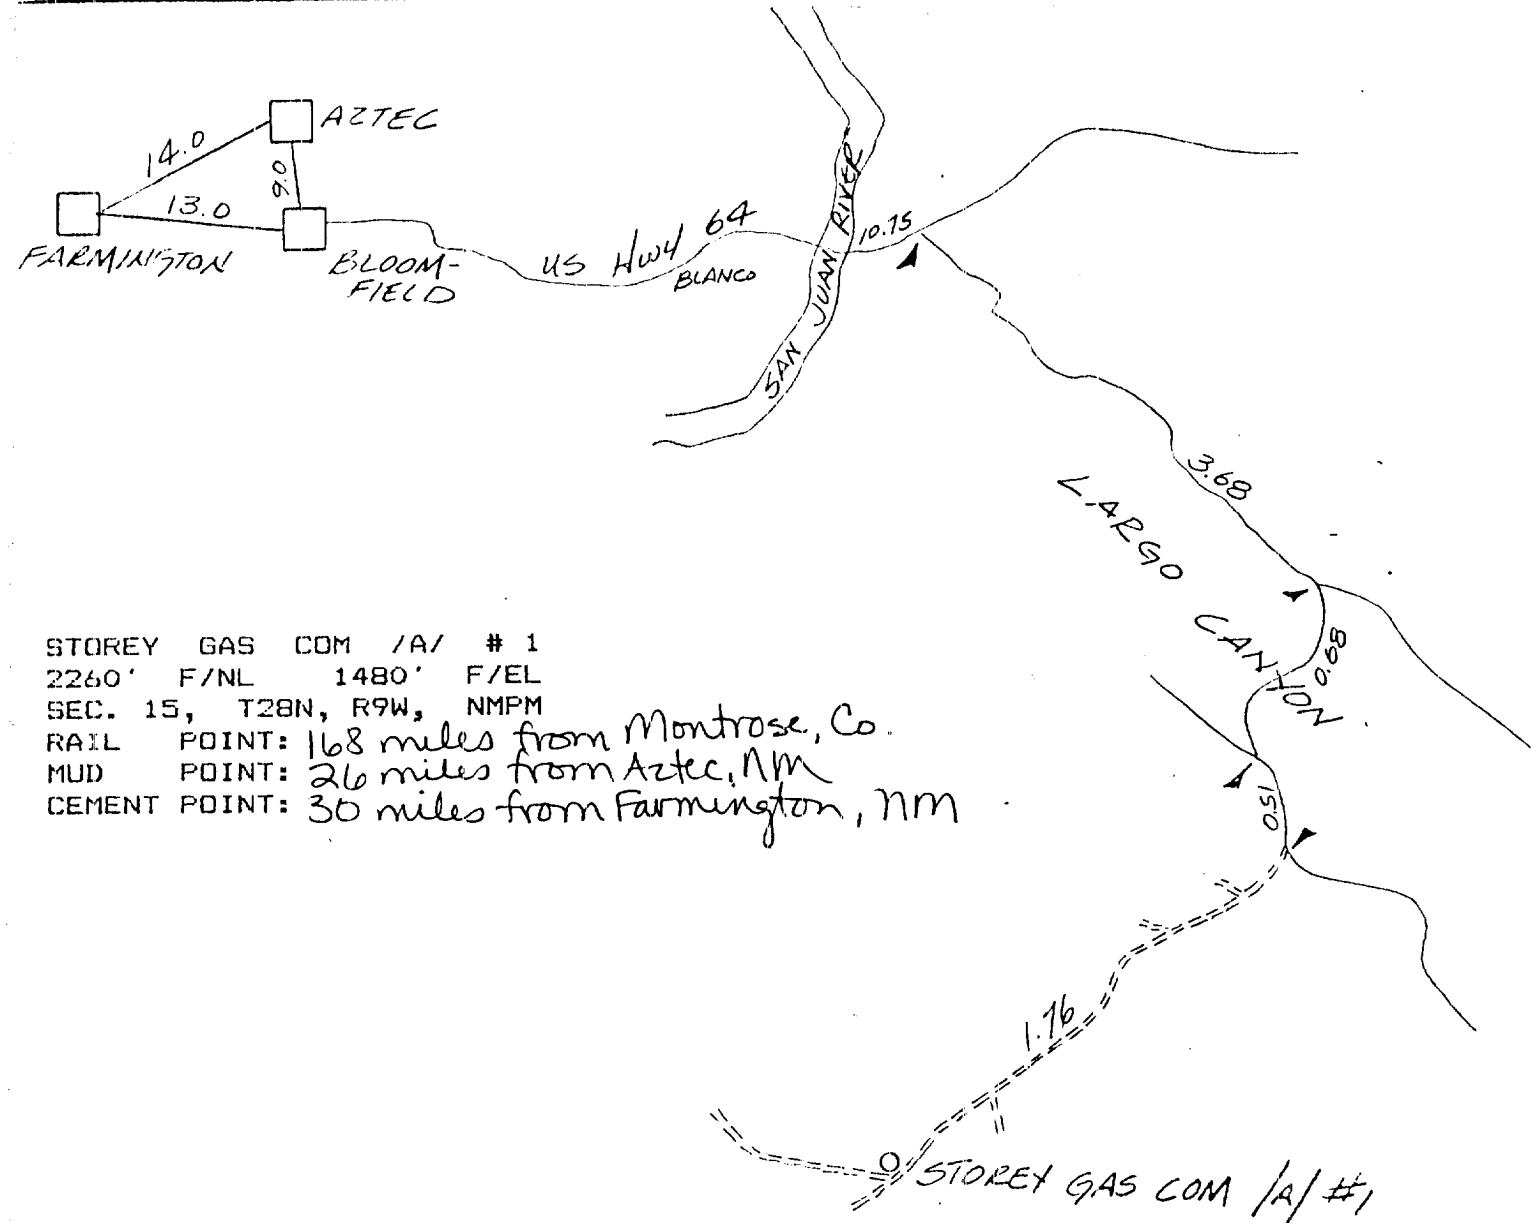 AZTEC
14.0
9.0
13.0
FARMINGTON
BLOOM-
FIELD
US HWY 64
BLANCO
SAN JUAN RIVER
10.75
3.68
LARGO CANYON
0.68
0.51
STOREY GAS COM /A/ # 1
2260' F/NL 1480' F/EL
SEC. 15, T28N, R9W, NMPM
RAIL POINT: 168 miles from Montrose, Co.
MUD POINT: 26 miles from Aztec, NM
CEMENT POINT: 30 miles from Farmington, NM
1.76
STOREY GAS COM /A/ #1